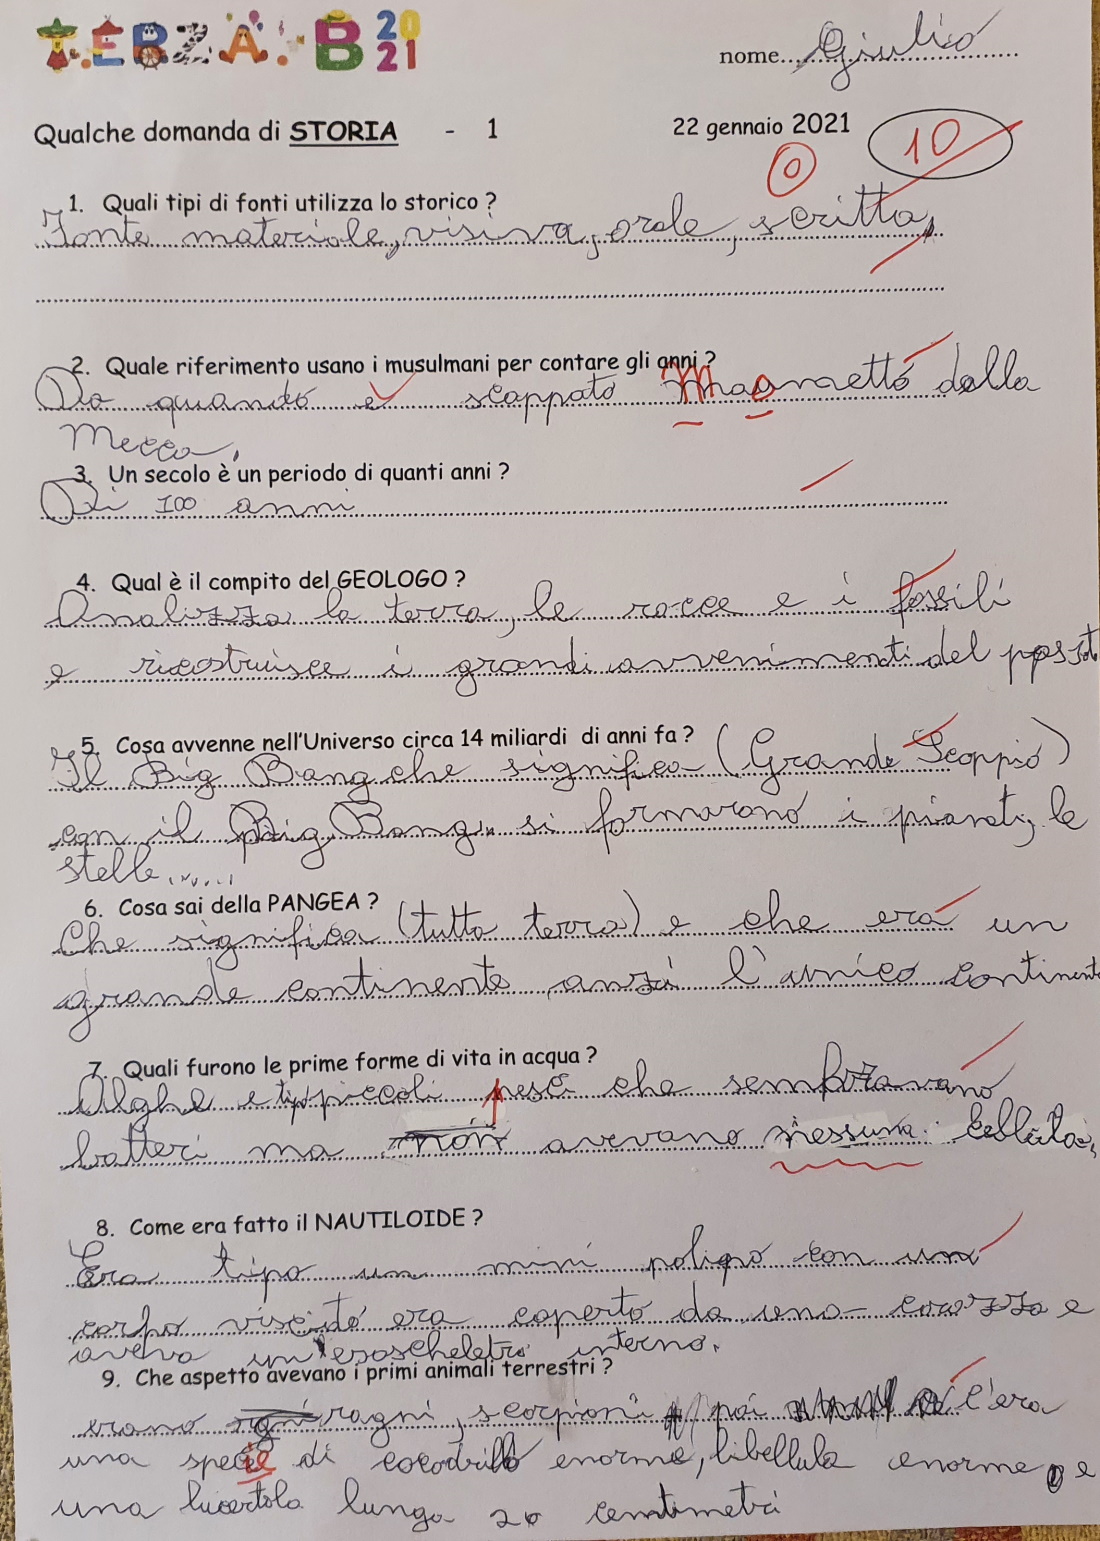 TERZA B 2021
nome Giulio
Qualche domanda di STORIA - 1 22 gennaio 2021 10
O
1. Quali tipi di fonti utilizza lo storico ?
Fonte materiale, visiva, orale, scritta,
2. Quale riferimento usano i musulmani per contare gli anni ?
Da quando è scappato Maometto dalla
Mecca,
3. Un secolo è un periodo di quanti anni ?
Di 100 anni
4. Qual è il compito del GEOLOGO ?
Analizza la terra, le rocce e i fossili
e ricostruisce i grandi avvenimenti del
5. Cosa avvenne nell'Universo circa 14 miliardi di anni fa ?
Il Big Bang che significa (Grande Scoppio)
con il Big Bang si formarono i pianeti, le
stelle......
6. Cosa sai della PANGEA ?
Che significa (tutta terra) e che era un
grande continente anzi l'unico continente
7. Quali furono le prime forme di vita in acqua ?
Alghe e tipo piccoli pesci che sembravano
batteri ma non avevano nessuna cellula,
8. Come era fatto il NAUTILOIDE ?
Era tipo un mini polipo con un
corpo viscido era coperto da una corazza e
aveva un'esoscheletro interno.
9. Che aspetto avevano i primi animali terrestri ?
erano ragni, scorpioni poi c'era
una specie di coccodrillo enorme, libellula enorme e
una lucertola lunga 20 centimetri